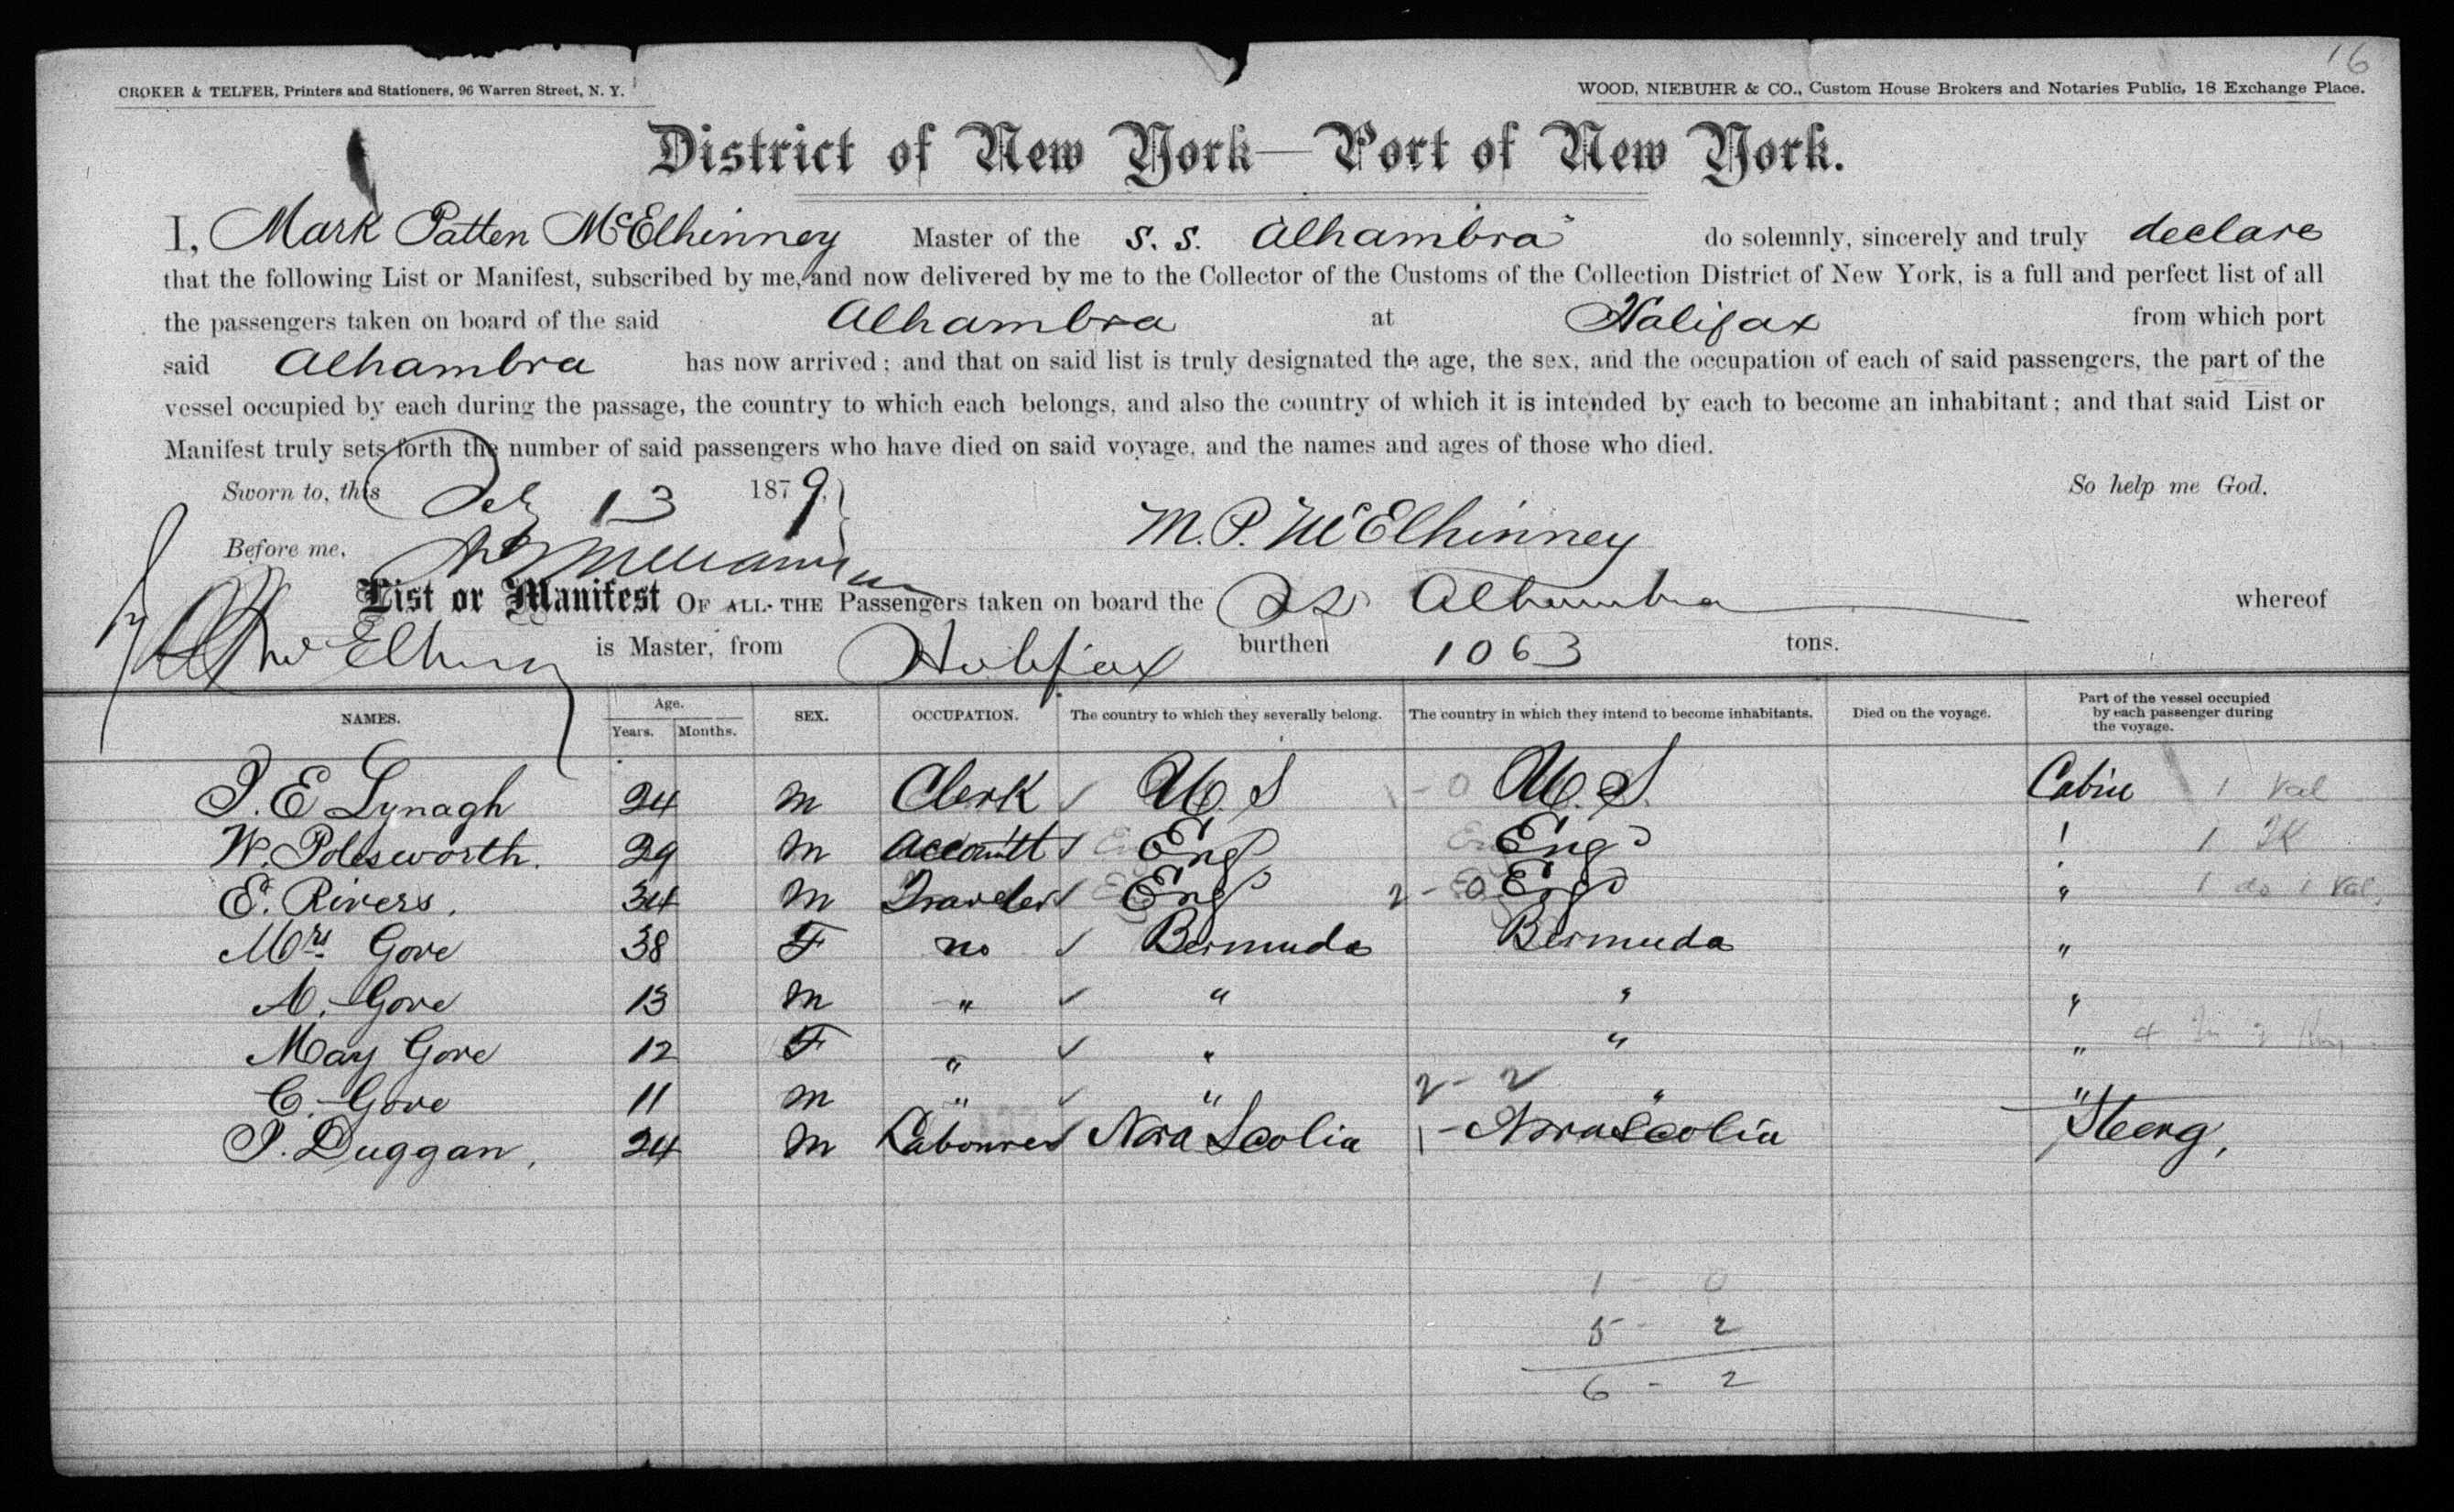 16
CROKER & TELFER, Printers and Stationers, 96 Warren Street, N. Y.
WOOD, NIEBUHR & CO., Custom House Brokers and Notaries Public, 18 Exchange Place.
District of New York—Port of New York.
I, Mark Patten McElhinney Master of the S. S. "Alhambra" do solemnly, sincerely and truly declare
that the following List or Manifest, subscribed by me, and now delivered by me to the Collector of the Customs of the Collection District of New York, is a full and perfect list of all
the passengers taken on board of the said Alhambra at Halifax from which port
said Alhambra has now arrived; and that on said list is truly designated the age, the sex, and the occupation of each of said passengers, the part of the
vessel occupied by each during the passage, the country to which each belongs, and also the country of which it is intended by each to become an inhabitant; and that said List or
Manifest truly sets forth the number of said passengers who have died on said voyage, and the names and ages of those who died.
Sworn to, this 13 1879, So help me God.
Before me, M. P. McElhinney
List or Manifest OF ALL THE Passengers taken on board the SS Alhambra whereof
McElhinney is Master, from Halifax burthen 1063 tons.
NAMES. Age. Years. Months. SEX. OCCUPATION. The country to which they severally belong. The country in which they intend to become inhabitants. Died on the voyage. Part of the vessel occupied by each passenger during the voyage.
J. E Lynagh 24 m Clerk ✓ U. S 1 - 0 U. S. Cabin 1 Val
W. Polesworth. 29 m Accountt ✓ Eng Eng " 1
E. Rivers. 34 m Traveler ✓ Eng 2 - 0 Eng " 1 do 1 Val,
Mrs. Gore 38 F no ✓ Bermuda Bermuda "
A. Gore 13 m " ✓ " " "
May Gore 12 F " ✓ " " " 4
C. Gore 11 m " ✓ " 2 - 2 " "
P. Duggan, 24 m Labourer ✓ Nova Scotia 1 - Nova Scotia Steerg,
1 - 0
5 - 2
6 - 2